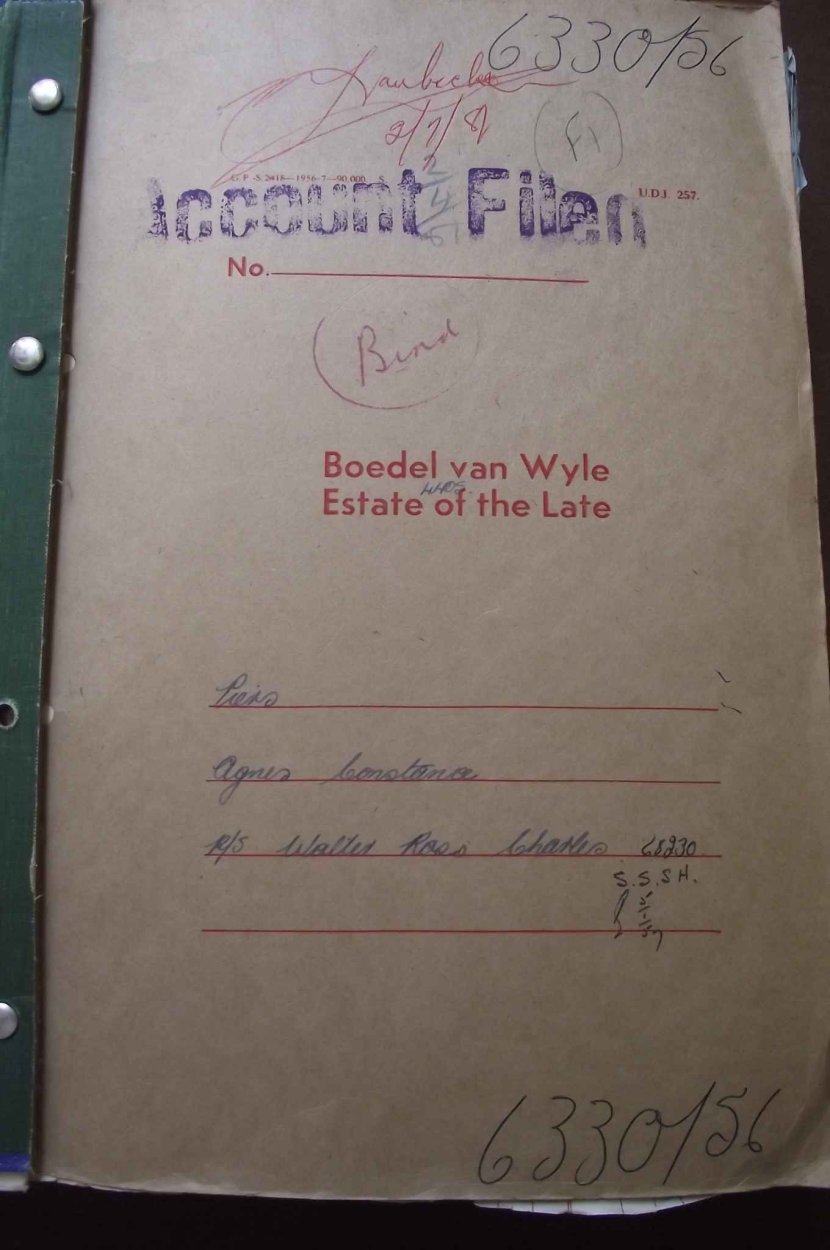 6330/56
2/7/81
F1
G.P.-S.2418—1956-7—90,000. S.
U.D.J. 257.
Account Filed
No.
Bind
Boedel van Wyle
Estate of the Late
Piers
Agnes Constance
P/S Walter Ross Charles 68230
S.S.S H.
6330/56